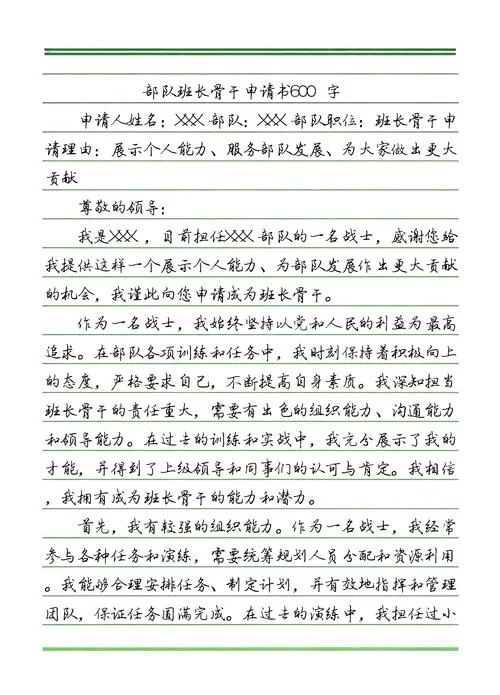 部队班长骨干申请书600 字
申请人姓名：XXX 部队：XXX 部队职位：班长骨干申
请理由：展示个人能力、服务部队发展、为大家做出更大
贡献
尊敬的领导：
我是XXX ，目前担任XXX 部队的一名战士，感谢您给
我提供这样一个展示个人能力、为部队发展作出更大贡献
的机会，我谨此向您申请成为班长骨干。
作为一名战士，我始终坚持以党和人民的利益为最高
追求。在部队各项训练和任务中，我时刻保持着积极向上
的态度，严格要求自己，不断提高自身素质。我深知担当
班长骨干的责任重大，需要有出色的组织能力、沟通能力
和领导能力。在过去的训练和实战中，我充分展示了我的
才能，并得到了上级领导和同事们的认可与肯定。我相信
，我拥有成为班长骨干的能力和潜力。
首先，我有较强的组织能力。作为一名战士，我经常
参与各种任务和演练，需要统筹规划人员分配和资源利用
。我能够合理安排任务、制定计划，并有效地指挥和管理
团队，保证任务圆满完成。在过去的演练中，我担任过小